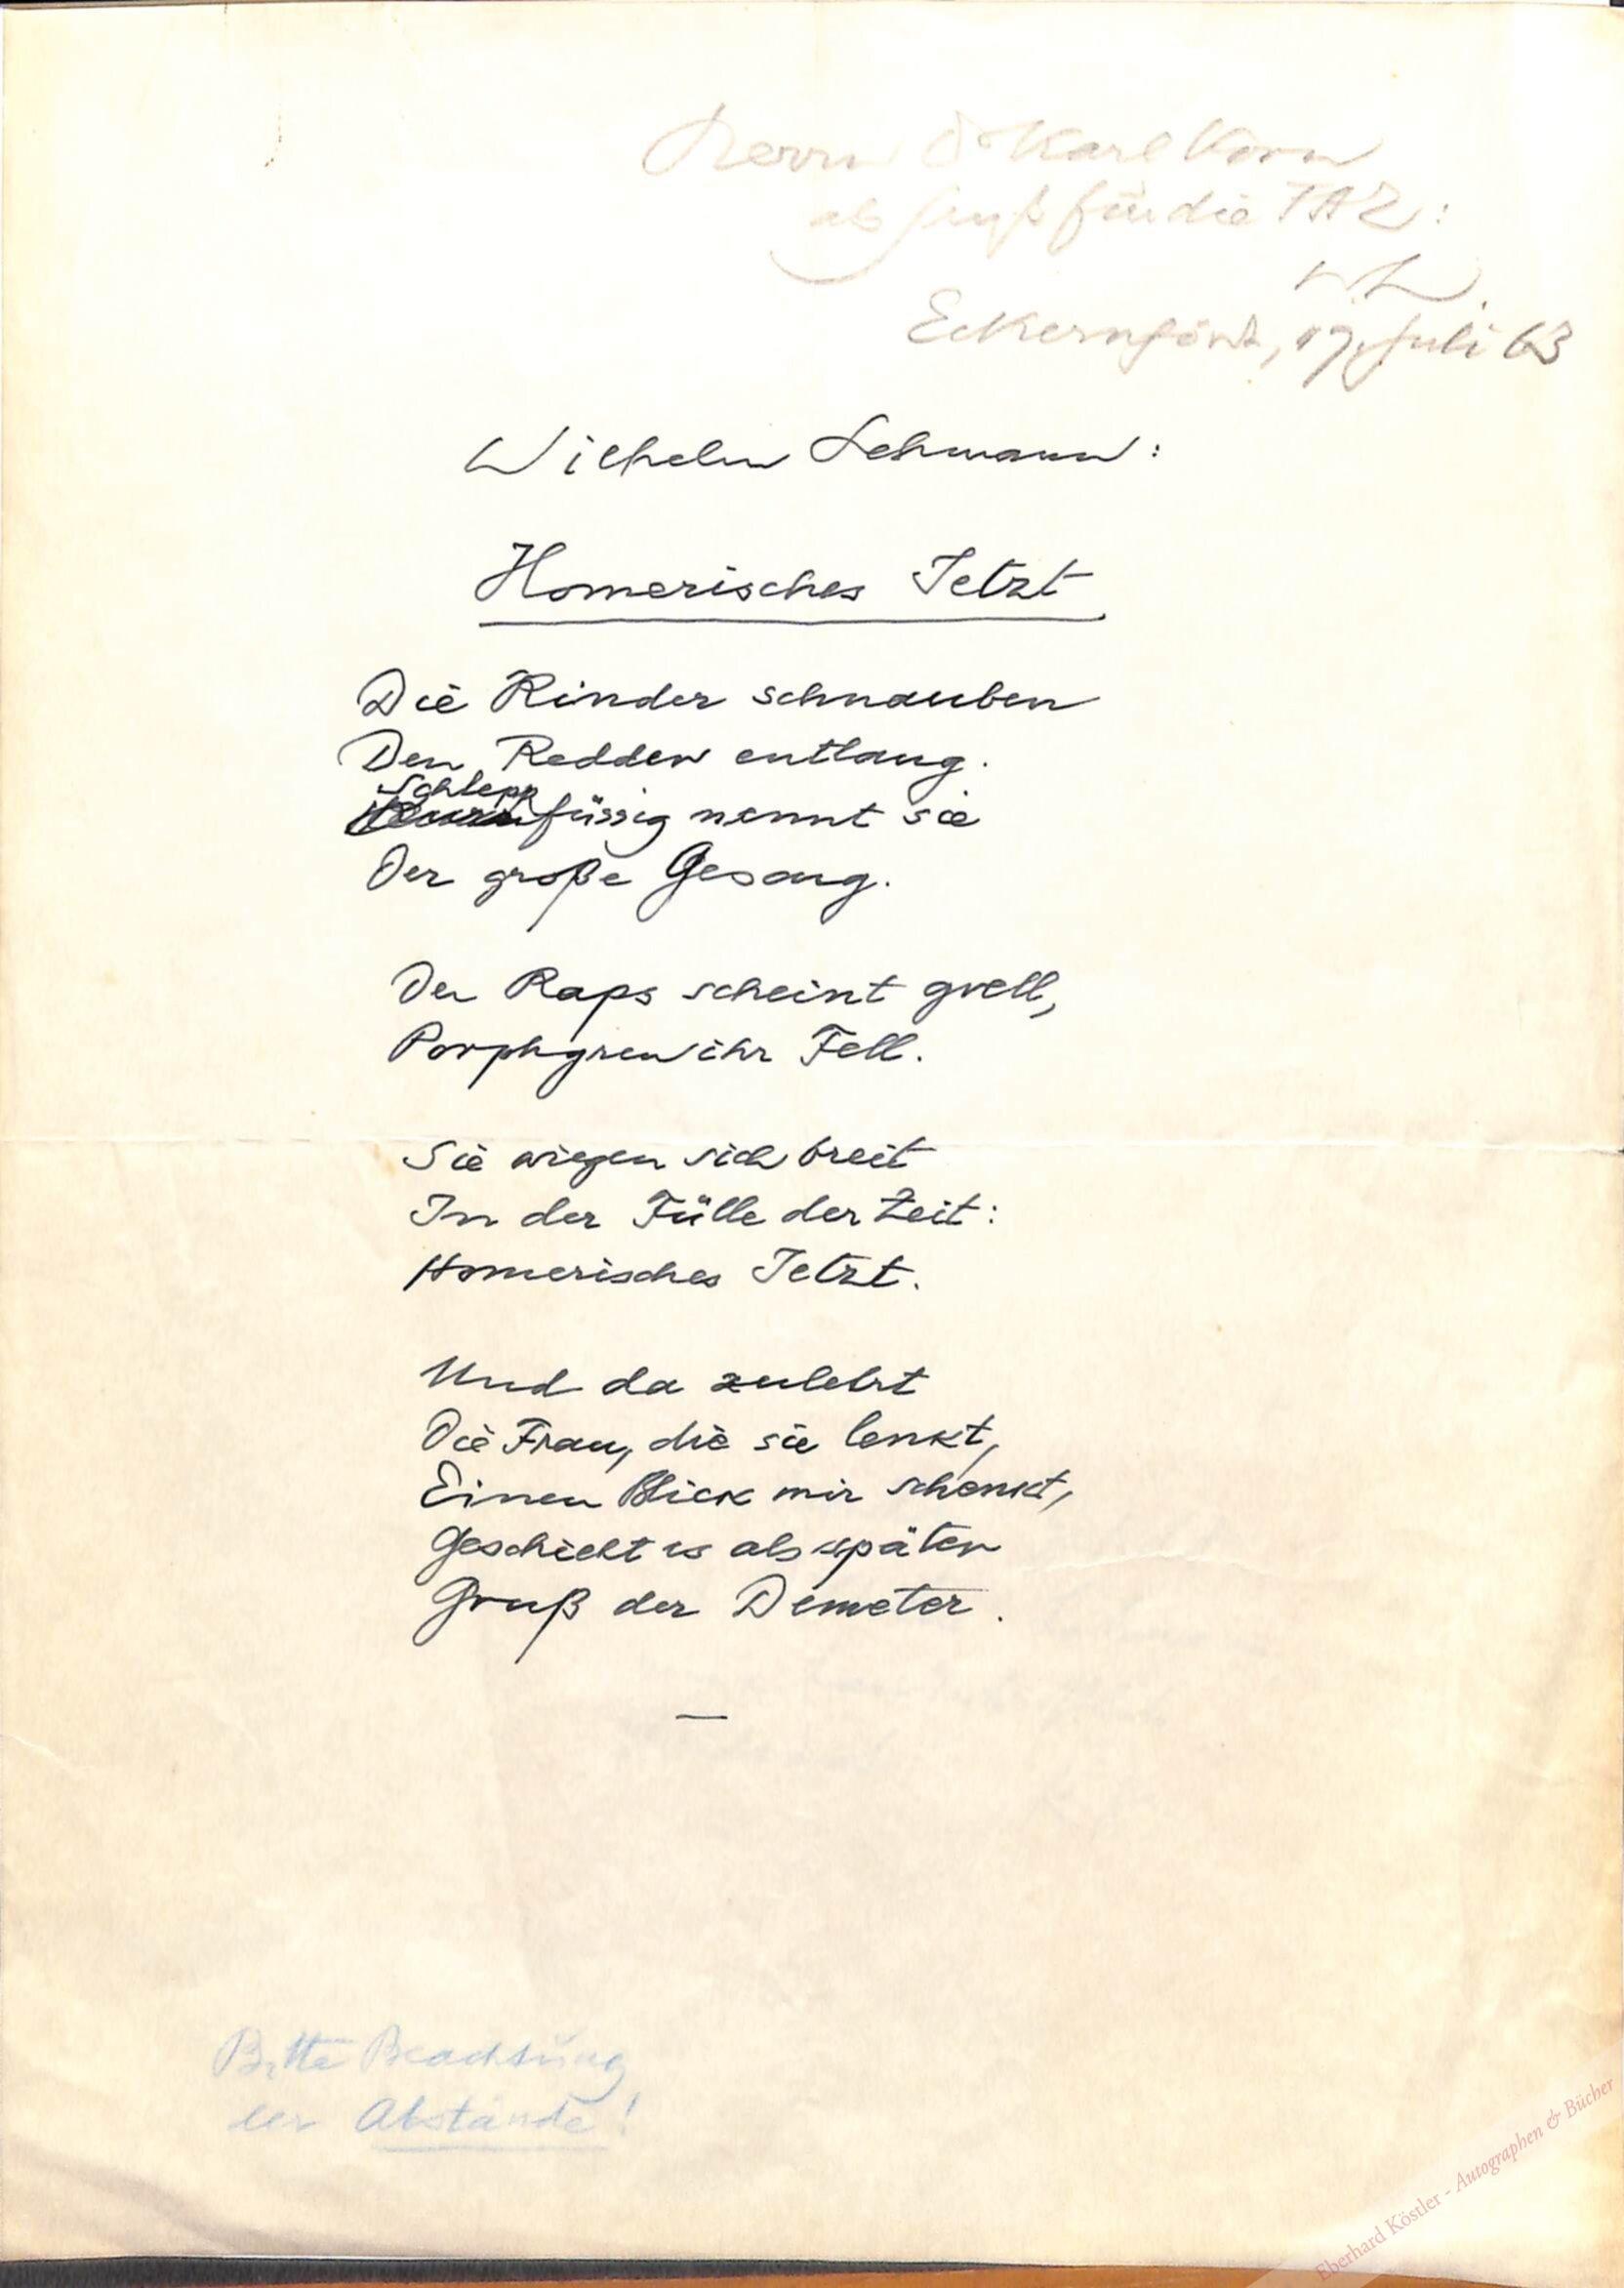 Herrn Dr Karl Korn
als Gruß für die FAZ:
W.L.
Eckernförde, 17. Juli 63
Wilhelm Lehmann:
Homerisches Jetzt
Die Rinder schnauben
Den Redder entlang.
Schlepp
füssig nennt sie
Der große Gesang.
Der Raps scheint grell,
Porphyren ihr Fell.
Sie wiegen sich breit
In der Fülle der Zeit:
Homerisches Jetzt.
Und da zuletzt
Die Frau, die sie lenkt,
Einen Blick mir schenkt,
Geschieht es als später
Gruß der Demeter.
—
Bitte Beachtung
der Abstände!
Eberhard Köstler - Autographen & Bücher